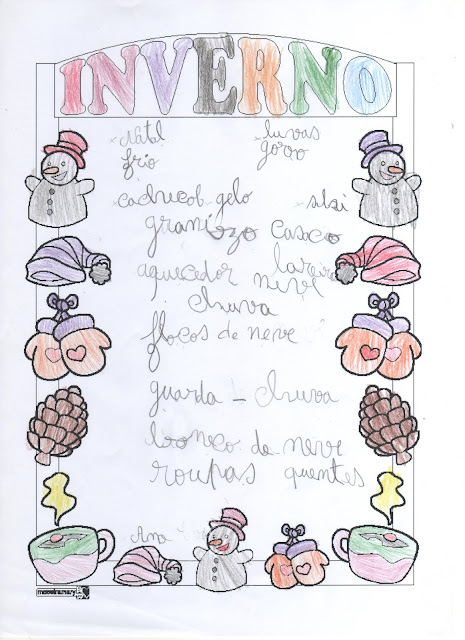 INVERNO
Natal luvas
frio gorro
cachecol gelo
granizo casaco
aquecedor lareira
neve
chuva
flocos de neve
guarda - chuva
boneco de neve
roupas quentes
Ana